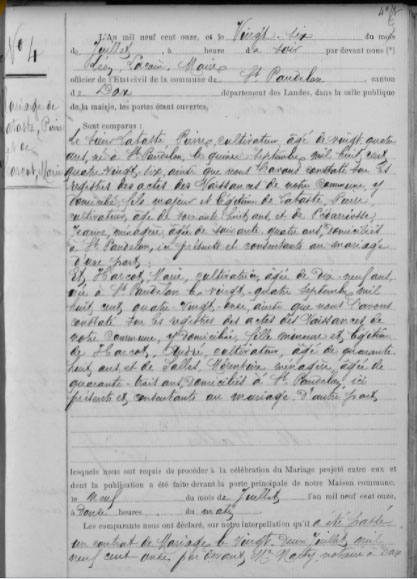 N° 4
Mariage de
Labatte, Pierre
et de
Harcot, Marie
L'An mil neuf cent onze, et le Vingt-six du mois
de Juillet, à heure du soir par devant nous (*)
Maire
officier de l'Etat civil de la commune de St Pandelon canton
de Dax département des Landes, dans la salle publique
de la mairie, les portes étant ouvertes,
Sont comparus :
Le sieur Labatte Pierre, cultivateur, âgé de vingt-quatre
ans, né à St Pandelon, le quinze septembre mil huit cent
quatre-vingt-six, ainsi que nous l'avons constaté sur les
registres des actes des Naissances de notre commune, y
domicilié, fils majeur et légitime de Labatte Pierre,
cultivateur, âgé de soixante-huit ans, et de
Jeanne, ménagère, âgée de soixante-quatre ans, domiciliés
à St Pandelon, ici présents et consentants au mariage
d'une part;
Et Harcot Marie, cultivatrice, âgée de dix-neuf ans,
née à St Pandelon le vingt-quatre septembre mil
huit cent quatre-vingt-onze, ainsi que nous l'avons
constaté sur les registres des actes des Naissances de
notre commune, y domiciliée, fille mineure et légitime
de Harcot, André, cultivateur, âgé de quarante-
huit ans, et de Salles ménagère, âgée de
quarante-huit ans, domiciliés à St Pandelon, ici
présents et consentants au mariage. D'autre part,
lesquels nous ont requis de procéder à la célébration du Mariage projeté entre eux et
dont la publication a été faite devant la porte principale de notre Maison commune,
le neuf du mois de Juillet, l'an mil neuf cent onze,
à heures du matin
Les comparants nous ont déclaré, sur notre interpellation qu'il a été passé
un contrat de Mariage le Vingt-deux Juillet mil
neuf cent onze, par devant Me notaire à Dax